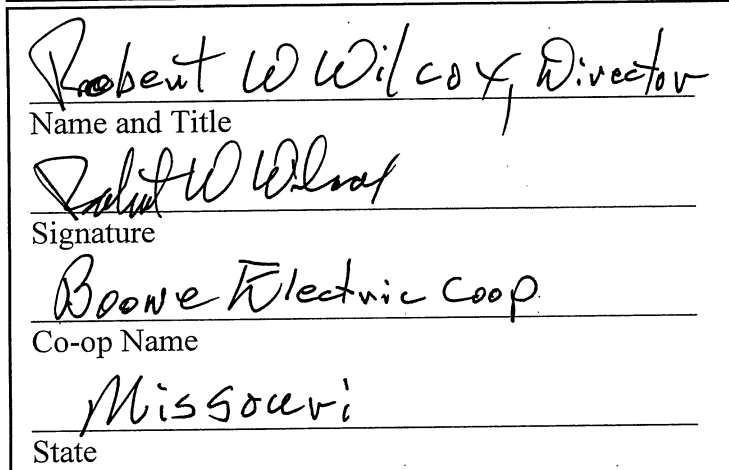 Robert W Wilcox, Director
Name and Title
Robert W Wilcox
Signature
Boone Electric Coop
Co-op Name
Missouri
State